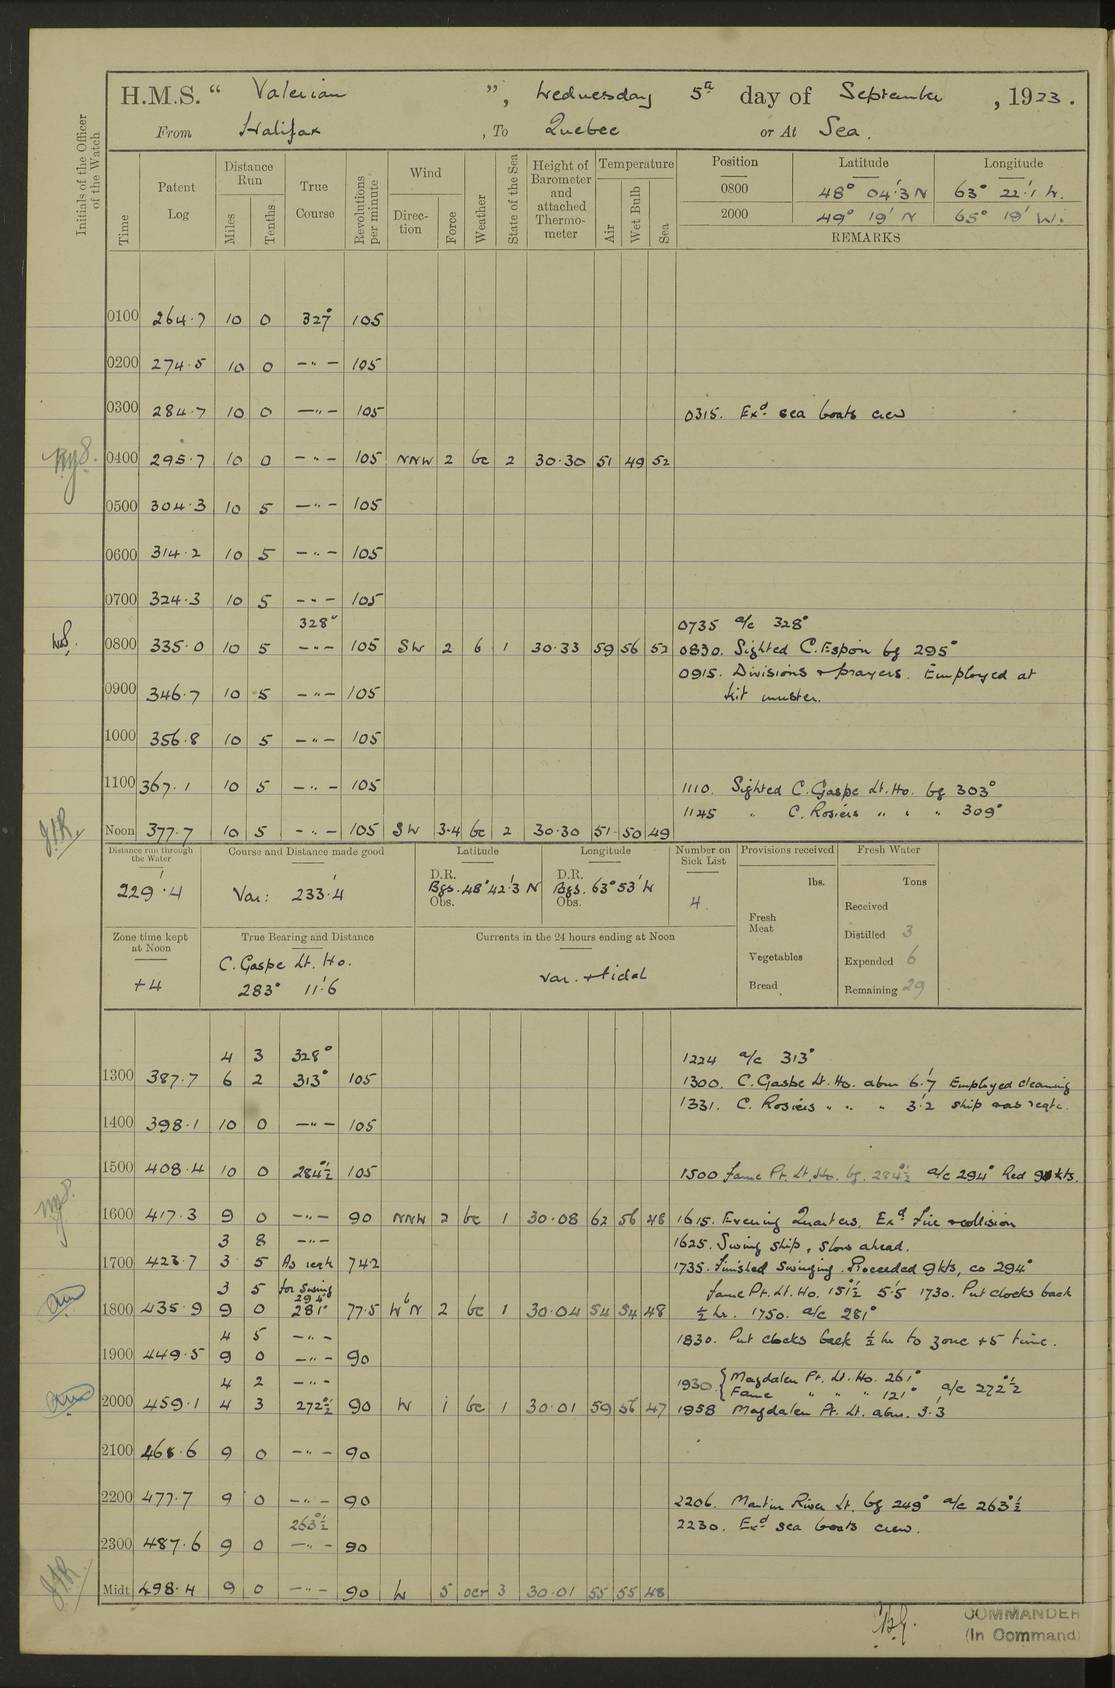 H.M.S. “ Valerian ”, Wednesday 5th day of September, 1923.
From Halifax, To Quebec or At Sea.
Initials of the Officer of the Watch
Time
Patent Log
Distance Run
Miles
Tenths
True Course
Revolutions per minute
Wind
Direction
Force
Weather
State of the Sea
Height of Barometer and attached Thermometer
Temperature
Air
Wet Bulb
Sea
Position Latitude Longitude
0800 48° 04·3 N 63° 22·1 W.
2000 49° 19' N 65° 19' W.
REMARKS
0100 264·7 10 0 327° 105
0200 274·5 10 0 –"– 105
0300 284·7 10 0 –"– 105 0315. Exd. sea boats crew
0400 295·7 10 0 –"– 105 NNW 2 bc 2 30·30 51 49 52
0500 304·3 10 5 –"– 105
0600 314·2 10 5 –"– 105
0700 324·3 10 5 –"– 105
328° 0735 a/c 328°
0800 335·0 10 5 –"– 105 SW 2 6 1 30·33 59 56 52 0830. Sighted C. Espoin bg 295°
0915. Divisions & prayers. Employed at
0900 346·7 10 5 –"– 105 kit muster.
1000 356·8 10 5 –"– 105
1100 367·1 10 5 –"– 105 1110. Sighted C. Gaspe Lt. Ho. bg 303°
1145 " C. Rosiers " " " 309°
Noon 377·7 10 5 –"– 105 SW 3·4 bc 2 30·30 51 50 49
Distance run through the Water
229'·4
Course and Distance made good
Var: 233'·4
Latitude
D.R.
Bgs. 48° 42'·3 N
Obs.
Longitude
D.R.
Bgs. 63° 53' W
Obs.
Number on Sick List
4
Provisions received
lbs.
Fresh Meat
Vegetables
Bread
Fresh Water
Tons
Received
Distilled 3
Expended 6
Remaining 29
Zone time kept at Noon
+4
True Bearing and Distance
C. Gaspe Lt. Ho.
283° 11'·6
Currents in the 24 hours ending at Noon
Var. & tidal
4 3 328° 1224 a/c 313°
1300 387·7 6 2 313° 105 1300. C. Gaspe Lt. Ho. abm 6'·7 Employed cleaning
1331. C. Rosiers " " " 3'·2 ship
1400 398·1 10 0 –"– 105
1500 408·4 10 0 284½° 105 1500 Fame Pt. Lt. Ho. bg. 284½° a/c 294° Red 9 kts.
1600 417·3 9 0 –"– 90 NNW 2 bc 1 30·08 62 56 48 1615. Evening Quarters. Exd fire & collision
3 8 –"– 1625. Swing ship, slow ahead.
1700 423·7 3 5 As reqte 74·2 1735. Finished swinging. Proceeded 9 kts, co 294°
3 5 for Swing Fame Pt. Lt. Ho. 151½° 5'·5 1730. Put clocks back
294°
1800 435·9 9 0 281° 77·5 WbN 2 bc 1 30·04 54 54 48 ½ hr. 1750. a/c 281°
4 5 –"– 1830. Put clocks back ½ hr to zone +5 time.
1900 449·5 9 0 –"– 90
4 2 –"– 1930 { Magdalen Pt. Lt. Ho. 261°
Fame " " " 121° a/c 272½°
2000 459·1 4 3 272½° 90 W 1 bc 1 30·01 59 56 47 1958 Magdalen Pt. Lt. abm. 3'·3
2100 468·6 9 0 –"– 90
2200 477·7 9 0 –"– 90 2206. Martin River Lt. bg 249° a/c 263½°
263½° 2230. Exd sea boats crew.
2300 487·6 9 0 –"– 90
Midt 498·4 9 0 –"– 90 W 5 ocr 3 30·01 55 55 48
COMMANDER
(In Command)